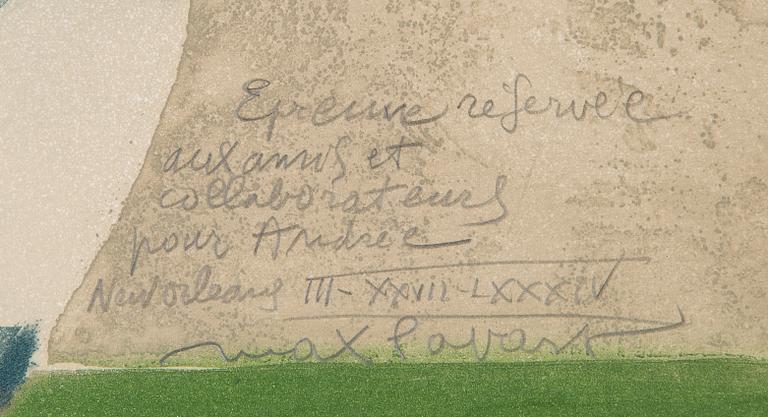 Epreuve réservée
aux amis et
collaborateurs
pour Andrée
New orleans III-XXVII-LXXXIV
max Papart